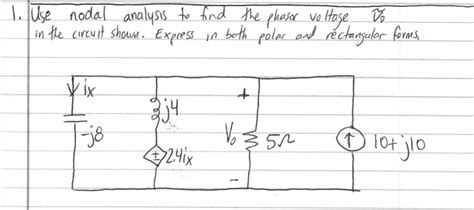 1. Use nodal analysis to find the phasor voltage V̄o
in the circuit shown. Express in both polar and rectangular forms.
ix
+
j4
-j8
Vo
5Ω
10+j10
±
2.4ix
-